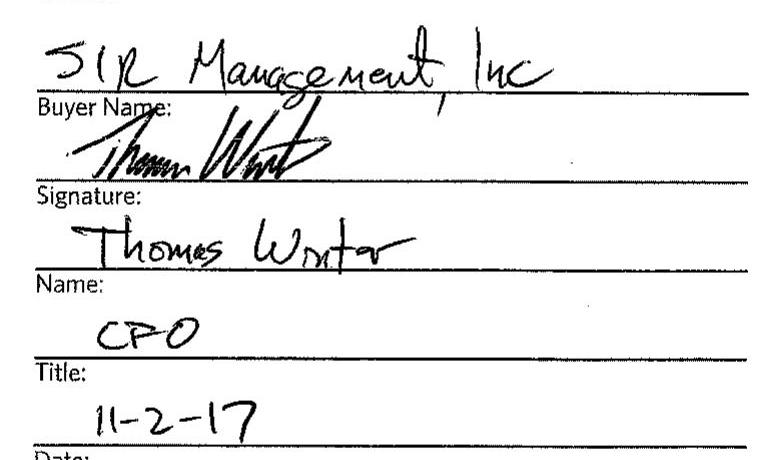 SIR Management, Inc
Buyer Name:
Thomas Winter
Signature:
Thomas Winter
Name:
CFO
Title:
11-2-17
Date: